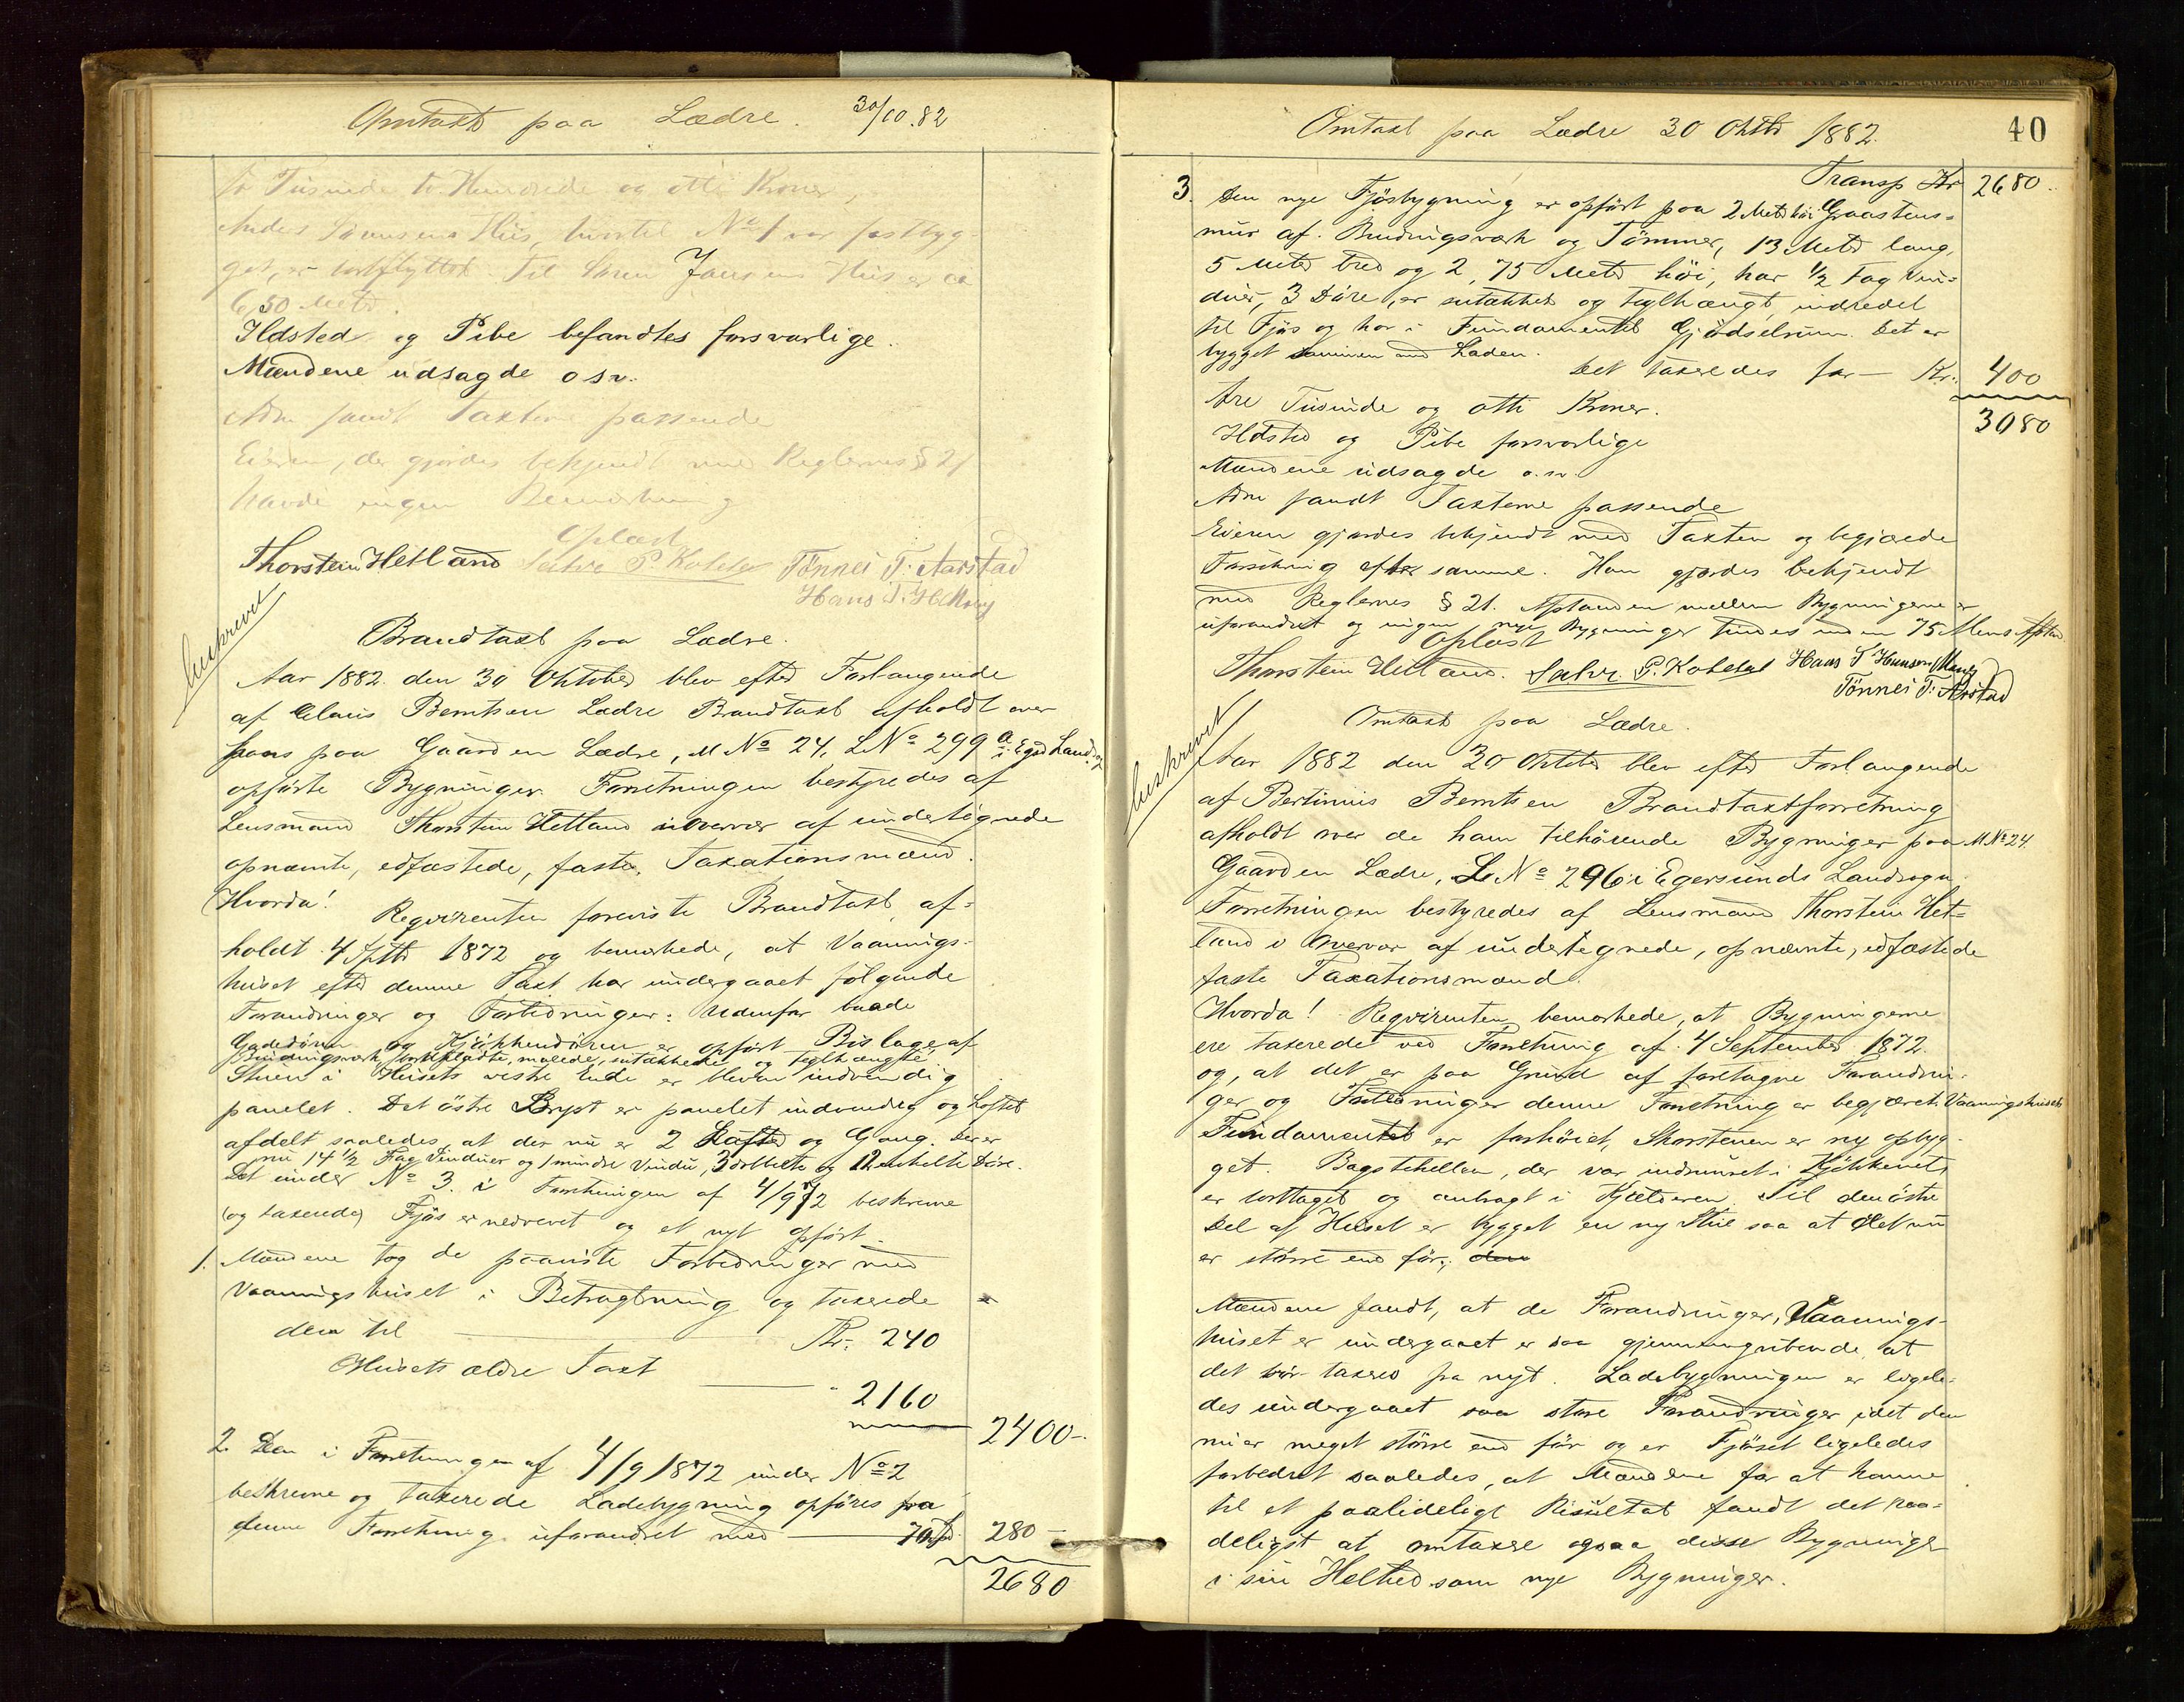 Omtaxt paa Lædre. 30/10.82
to Tusinde to Hundrede og otti Kroner,
Anders Sørensens Hus, hvortil No 1 var fastbyg-
get, er bortflyttet. Til Søren Jansens Hus er ca
6,50 Meter.
Ildsted og Pibe befandtes forsvarlige.
Mændene udsagde osv.
Adm fandt Taxten passende
Eieren, der gjordes bekjendt med Reglernes § 21
havde ingen Bemærkning
Oplæst
Thorstein Hetland Tönnes T. Aarstad
Hans T.
Beskrevet
Brandtaxt paa Lædre.
Aar 1882 den 30 Oktober blev efter Forlangende
af Claus Berntsen Lædre Brandtaxt afholdt over
hans paa Gaarden Lædre, M No 24, L No 299 a i Egds Landsogn
opførte Bygninger. Forretningen bestyredes af
Lensmand Thorstein Hetland i Overvær af undertegnede
opnævnte, edfæstede, faste, Taxationsmænd.
Hvorda! Reqvirenten foreviste Brandtaxt, af-
holdt 4 Septb 1872 og bemærkede, at Vaanings-
huset efter denne Taxt har undergaaet følgende
Forandringer og Forbedringer: udenfor baade
Gadedøren og Kjøkkendøren er opført Bislage af
Bindingsværk, bordklædte, malede, sutakkede og teglhængte
Stuen i Husets vestre Ende er bleven indvendig
panelet. Det østre er panelet indvendig og Loftet
afdelt saaledes, at der nu er 2 Lofter og Gang. Der er
nu 14 1/2 Fag Vinduer og 1 mindre Vindu, 3 dobbelte og 12 enkelte Døre.
Det under No 3. i Forretningen af 4/9 72 beskrevne
(og taxerede) Fjøs er nedrevet og et nyt opført.
1. Mændene tog de paaviste Forbedringer med
Vaaningshuset i Betragtning og taxerede
dem til Kr. 240
Husets ældre Taxt
" 2160
2400-
2. Den i Forretningen af 4/9 1872 under No 2
beskrevne og taxerede Ladebygning opføres fra
denne Forretning uforandret med 280-
2680
Omtaxt paa Lædre 30 Oktb 1882. 40
Transp Kr 2680.
3. Den nye Fjøsbygning er opført paa 2 Meter høi Graastens-
mur af Bindingsværk og Tømmer, 13 Meter lang,
5 Meter bred og 2,75 Meter høi, har 1/2 Fag Vin-
duer, 3 Døre, er sutækket og teglhængt, indredet
til Fjøs og har i Fundamentet Gjødselrum. Det er
bygget sammen med Laden.
Det taxeredes for - Kr. 400
3080
tre Tusinde og otti Kroner.
Ildsted og Pibe forsvarlige
Mændene udsagde o.s.v.
Adm fandt Taxterne passende
Eieren gjordes bekjendt med Taxten og begjærede
Forsikring efter samme. Han gjordes bekjendt
med Reglernes § 21. Afstanden mellem Bygningerne er
uforandret og ingen nye Bygninger findes inden 75 Alens Afstand
Oplæst
Thorstein Hetland. Hans T Hansen
Tönnes T. Aarstad
Beskrevet
Omtaxt paa Lædre.
Aar 1882 den 30 Oktober blev efter Forlangende
af Bertinius Berntsen Brandtaxtforretning
afholdt over de ham tilhørende Bygninger paa M No 24.
Gaarden Lædre, L No 296 i Egersunds Landsogn.
Forretningen bestyredes af Lensmand Thorstein Het-
land i Overvær af undertegnede, opnævnte, edfæstede
faste Taxationsmænd.
Hvorda! Reqvirenten bemærkede, at Bygningerne
ere taxerede ved Forretning af 4 September 1872.
og, at det er paa Grund af foretagne Forandrin-
ger og Forbedringer denne Forretning er begjæret. Vaaningshusets
Fundamentet er forhøiet, Skorstenen er ny opbyg-
get. Bagstehellen, der var indmuret i Kjøkkenet,
er borttaget og anbragt i Kjælderen. Til den østre
Del af Huset er bygget en ny Stue saa at det nu
er større end før; den
Mændene fandt, at de Forandringer, Vaanings-
huset er undergaaet er saa gjennemgribende, at
det bør taxeres fra nyt. Ladebygningen er ligele-
des undergaaet saa store Forandringer idet den
nu er meget større end før og er Fjøset ligeledes
forbedret saaledes, at Mændene for at komme
til et paalideligt Resultat fandt det raa-
deligst at omtaxere ogsaa disse Bygninger
i sin Helhed som nye Bygninger.